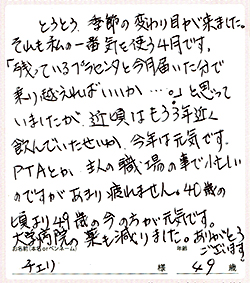 とうとう、季節の変わり目が来ました。
それも私の一番気を使う4月です。
「残っているプラセンタと今月届いた分で
乗り越えればいいか…。」と思って
いましたが、近頃はもう3年近く
飲んでいたせいか、今年は元気です。
PTAとか、主人の職場の事で忙しい
のですがあまり疲れません。40歳の
頃より49歳の今の方が元気です。
大学病院の薬も減りました。ありがとう
ございます!
お名前(本名 or ペンネーム) 年齢
チェリー 様 49 歳